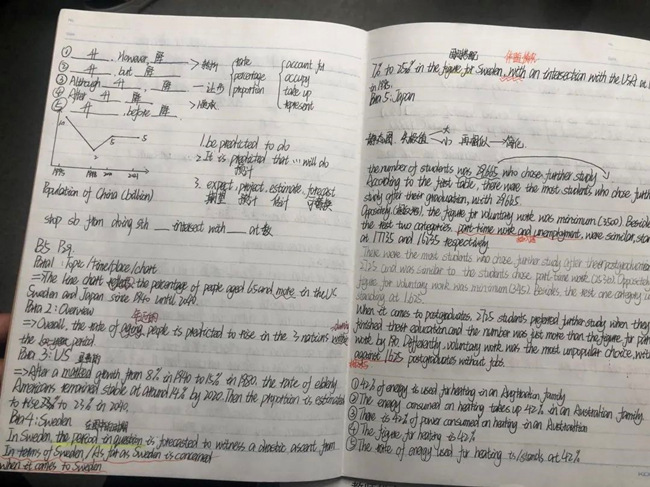 ① 升 , However, 降
② 升 , but 降
③ Although 升 , 降
④ After 升 , 降
⑤ 升 , before 降
>转折
一让步
rate
percentage
proportion
account for
occupy
take up
represent
1995 1998 2001 2021
Population of China (billion)
1. be predicted to do
2. It is predicted that … will do
预计
3. expect, project, estimate, forecast
期望 预计 估计
stop sb from doing sth __ intersect with __ at 数
Para1: Topic/time/place/chart
⇒The line chart the percentage of people aged 65 and more in the US
Sweden and Japan since 1940 until 2040.
Para 2: Overview
⇒Overall, the rate of aging people is predicted to rise in the 3 nations
the period.
Para 3: US
⇒After a marked growth from 8% in 1940 to 15% in 1980, the rate of elderly
Americans remained stable at around 14% by 2020. Then the proportion is estimated
to rise to 23% in 2040.
Para4: Sweden
In Sweden, the period in question is forecasted to witness a drastic ascent from
In terms of Sweden / As far as Sweden is concerned
when it comes to Sweden
7% to 25% in the figure for Sweden, with an intersection with the USA at
in 1995.
Para 5: Japan
大
小
the number of students was 29665 who chose further study
According to the first table, there were the most students who chose further
study after their graduation, with 29665.
Oppositely, the figure for voluntary work was minimum (3500). Besides
the rest two categories, part-time work and unemployment, were similar, standing
at 17735 and 16235 respectively.
There were the most students who chose further study after their postgraduation
2725 and was similar to the students chose part-time work (2535). Oppositely
figure for voluntary work was minimum (345). Besides, the rest one category is
standing at 1625.
When it comes to postgraduates, 2725 students preferred further study when they
finished their education and the number was just more than the figure for part-
work by 190. Differently, voluntary work was the most unpopular choice, with
against 1625 postgraduates without jobs.
① 42% of energy is used for heating in an Australian family
② The energy consumed on heating takes up 42% in an Australian family.
③ There is 42% of power consumed on heating in an Australian
④ The figure for heating is 42%
⑤ The rate of energy used for heating is/stands at 42%